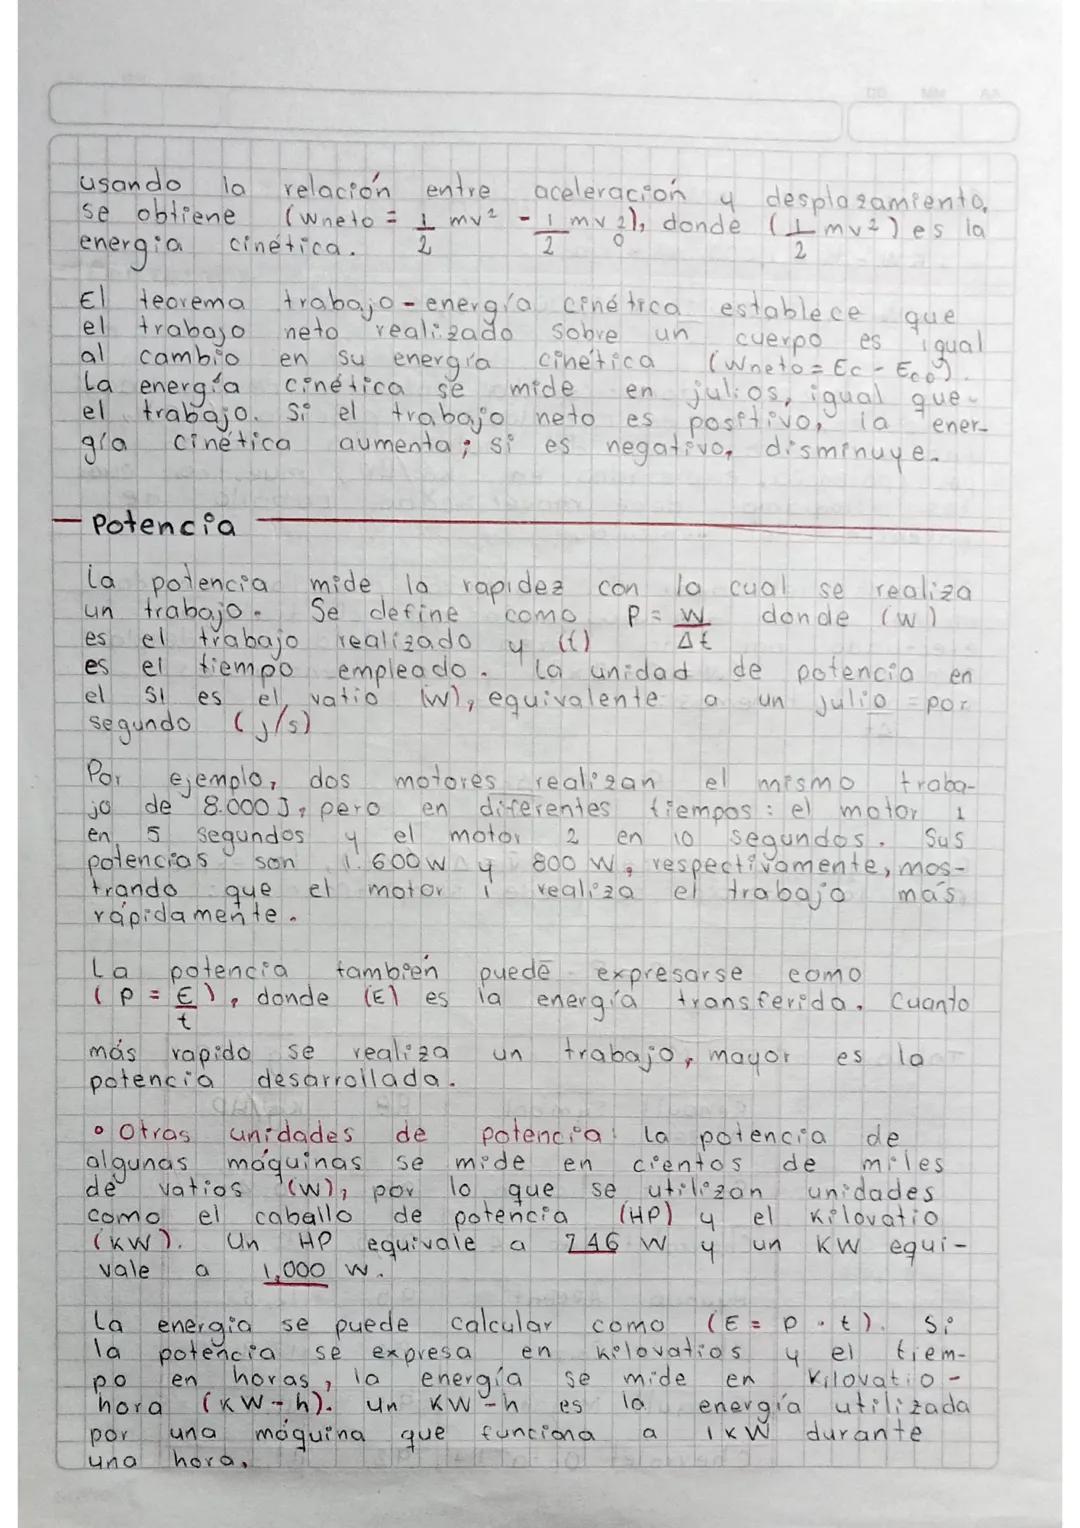 DD MM AA
usando la relación entre aceleración y desplazamiento,
se obtiene (Wneto = 1/2 mv² - 1/2 mv₀²), donde (1/2 mv²) es la
energía cinética.
El teorema trabajo-energía cinética establece que
el trabajo neto realizado sobre un cuerpo es igual
al cambio en su energía cinética (Wneto = Ec - Ec₀).
La energía cinética se mide en julios, igual que
el trabajo. Si el trabajo neto es positivo, la ener-
gía cinética aumenta; si es negativo, disminuye.
Potencia
La potencia mide la rapidez con la cual se realiza
un trabajo. Se define como P = W/Δt donde (W)
es el trabajo realizado y (t)
es el tiempo empleado. La unidad de potencia en
el SI es el vatio (W), equivalente a un julio por
segundo (j/s)
Por ejemplo, dos motores realizan el mismo traba-
jo de 8.000 J, pero en diferentes tiempos: el motor 1
en 5 segundos y el motor 2 en 10 segundos. Sus
potencias son 1.600 W y 800 W, respectivamente, mos-
trando que el motor 1 realiza el trabajo más
rápidamente.
La potencia también puede expresarse como
(P = E/t), donde (E) es la energía transferida. Cuanto
más rapido se realiza un trabajo, mayor es la
potencia desarrollada.
• Otras unidades de potencia: La potencia de
algunas máquinas se mide en cientos de miles
de vatios (W), por lo que se utilizan unidades
como el caballo de potencia (HP) y el Kilovatio
(KW). Un HP equivale a 746 W y un KW equi-
vale a 1,000 W.
La energía se puede calcular como (E = P · t). Si
la potencia se expresa en Kilovatios y el tiem-
po en horas, la energía se mide en Kilovatio-
hora (KW-h). Un KW-h es la energía utilizada
por una máquina que funciona a 1KW durante
una hora.